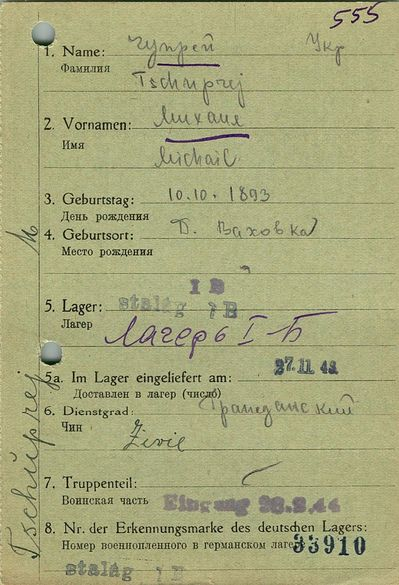 555
1. Name: Чупрей Укр
Фамилия
Tschuprej
2. Vornamen: Михаил
Имя
Michail
3. Geburtstag: 10.10.1893
День рождения
4. Geburtsort: Д. Ваховка
Место рождения
I B
5. Lager: stalag 1 B
Лагер
Лагерь I-Б
5a. Im Lager eingeliefert am: 27.11.43
Доставлен в лагер (число)
6. Dienstgrad: Гражданский
Чин
Zivil
7. Truppenteil:
Воинская часть Eingang 28.2.44
8. Nr. der Erkennungsmarke des deutschen Lagers:
Номер военнопленного в германском лагере 33910
stalag 1 B
Tschuprej M